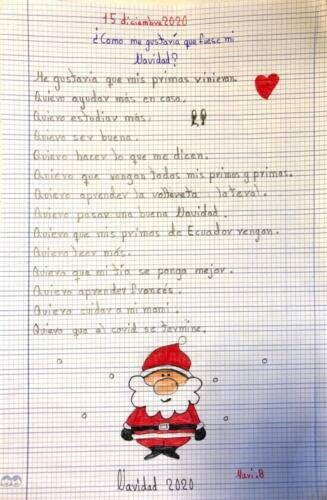 15 diciembre 2020
¿Como me gustaría que fuese mi
Navidad?
Me gustaria que mis primas vinieran.
Quiero ayudar más en casa.
Quiero estudiar más.
Quiero ser buena.
Quiero hacer lo que me dicen.
Quiero que vengan todos mis primos y primas.
Quiero aprender la voltereta lateral.
Quiero pasar una buena Navidad.
Quiero que mis primas de Ecuador vengan.
Quiero leer más.
Quiero que mi tía se ponga mejor.
Quiero aprender francés.
Quiero cuidar a mi mami.
Quiero que el covid se termine.
Navidad 2020
Mari.B